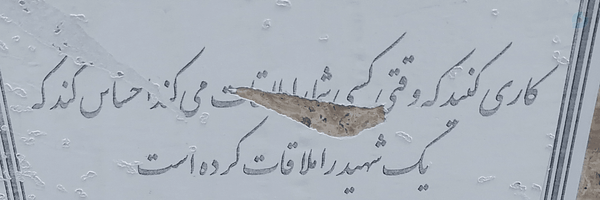 کاری کنید که وقتی کسی شما را ملاقات می کند احساس کند که
یک شهید را ملاقات کرده است